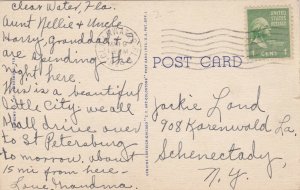 Clear Water, Fla.
Aunt Nellie & Uncle
Harry, Granddad &
are spending the
night here.
This is a beautiful
little City, we all
shall drive over
to St Petersburg
to morrow, about
15 mi from here -
Love, Grandma.
UNITED STATES
POSTAGE
1 CENT 1
POST CARD
Jackie Lond
908 Karenwald La.
Schenectady,
N.Y.